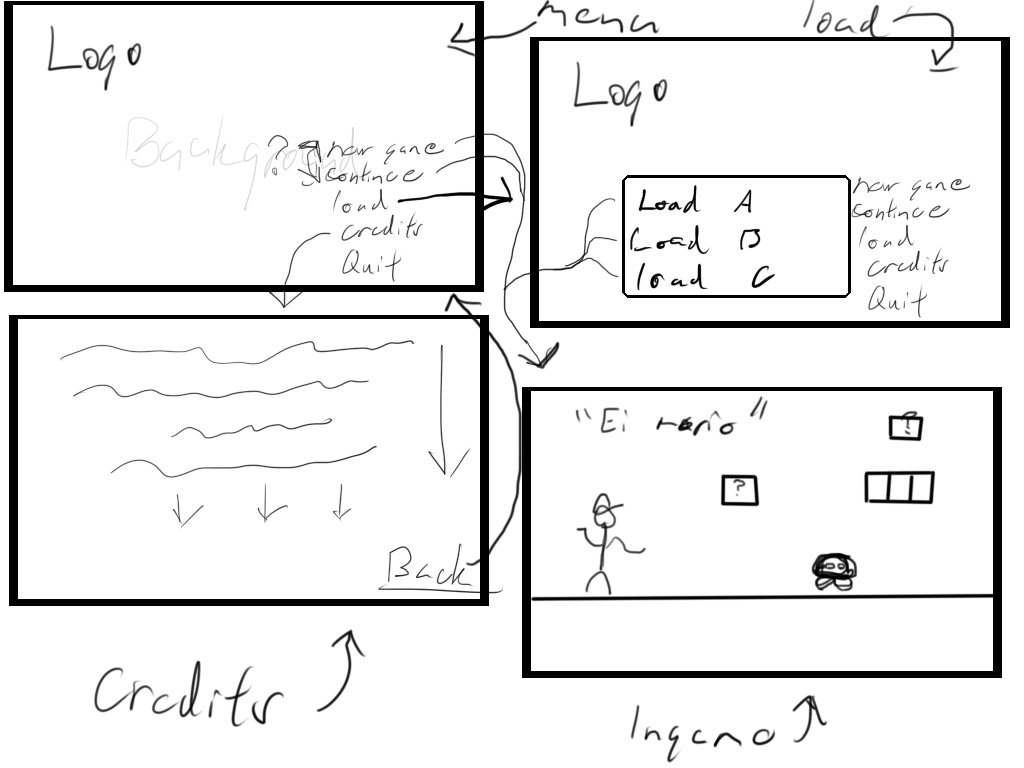 menu
load
Logo
Background
? new game
continue
load
credits
Quit
Logo
Load A
Load B
load C
new game
continue
load
credits
Quit
Back
Credits
"Ei mario"
!
?
Ingame